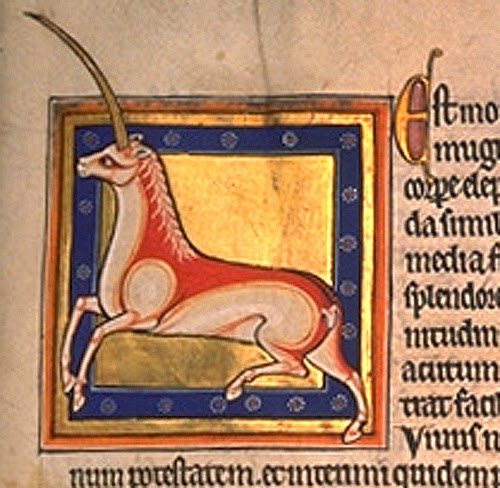 Est mo
mugi
corpe ele
da simil
media f
splendore
nitudin
acutum
trat facil
Viuus n
num potestatem. et interimi quidem